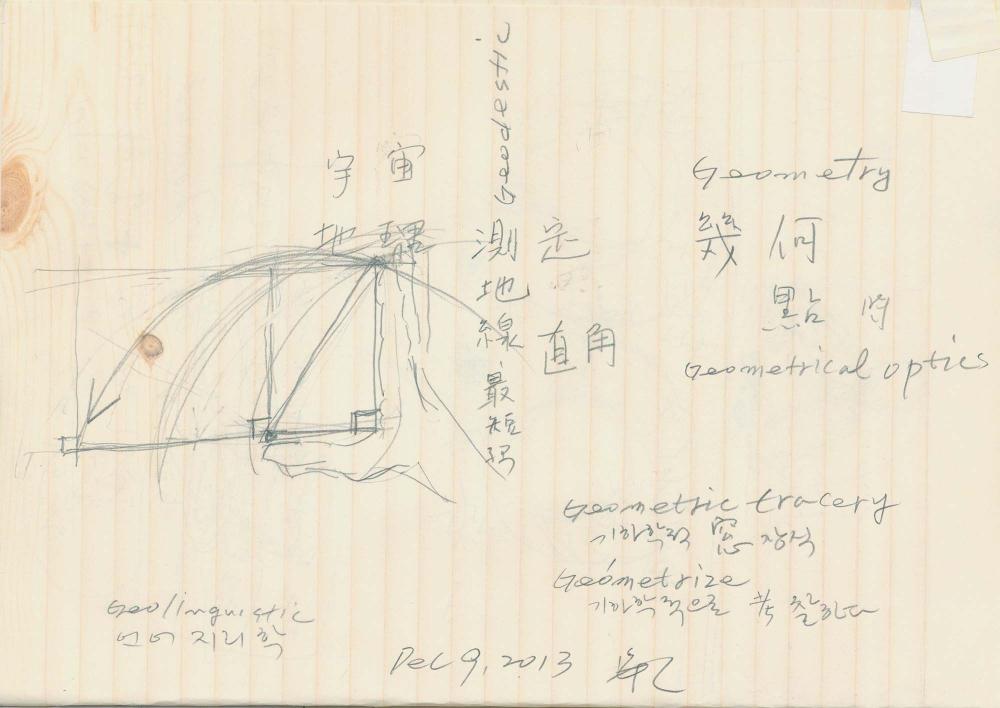 Geodestic
宇宙
地
測定
地
線
直角
最
短
Geometry
幾何
點
Geometrical optics
Geometric tracery
기하학적 窓 장식
Geómetrize
기하학적으로 찰하다
Geolinguistic
언어 지리학
Dec 9, 2013